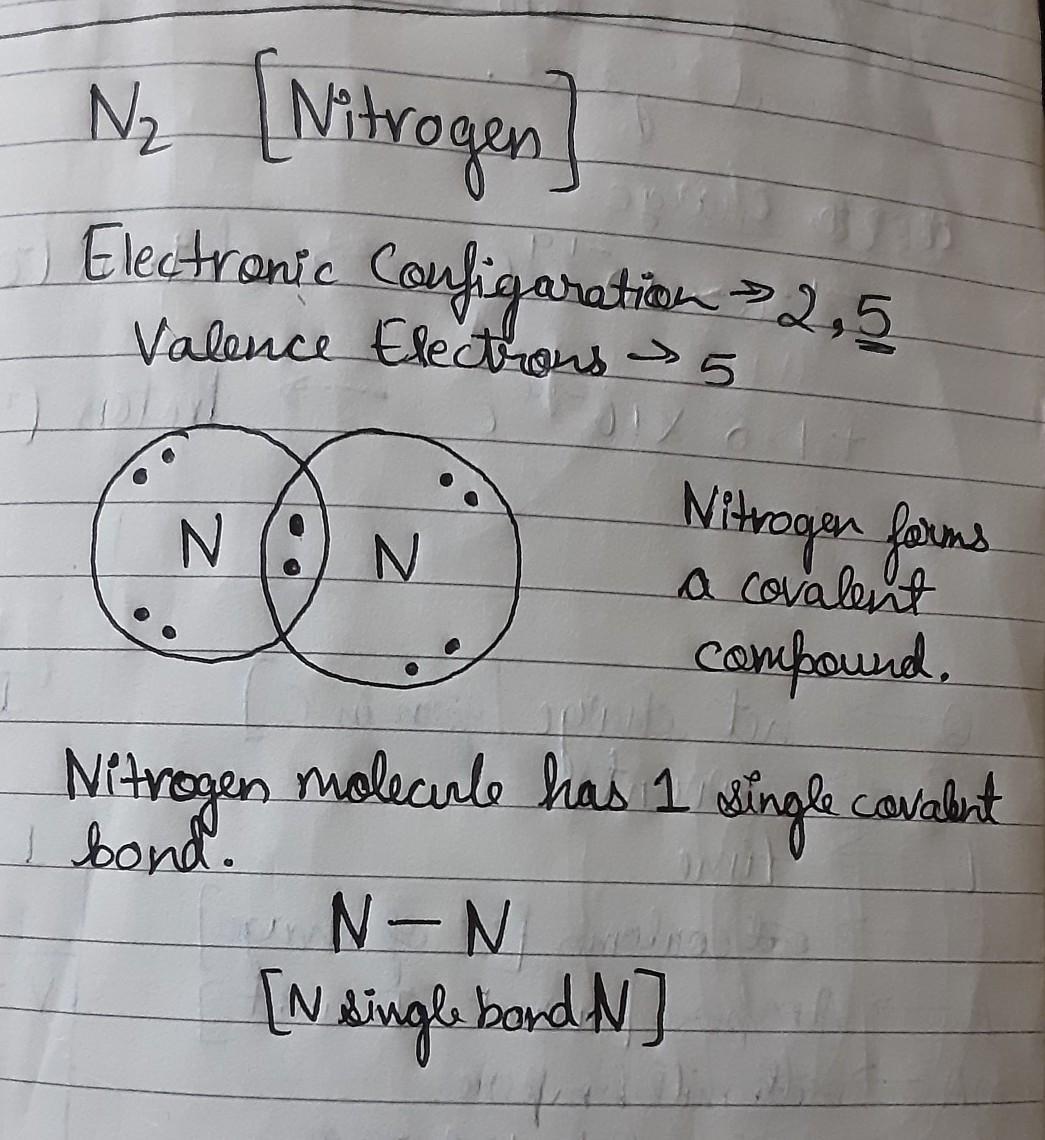 N₂ [Nitrogen]
Electronic Configaration → 2, 5
Valence Electrons → 5
N N
Nitrogen forms
a covalent
compound.
Nitrogen molecule has 1 single covalent
bond.
N — N
[N single bond N]